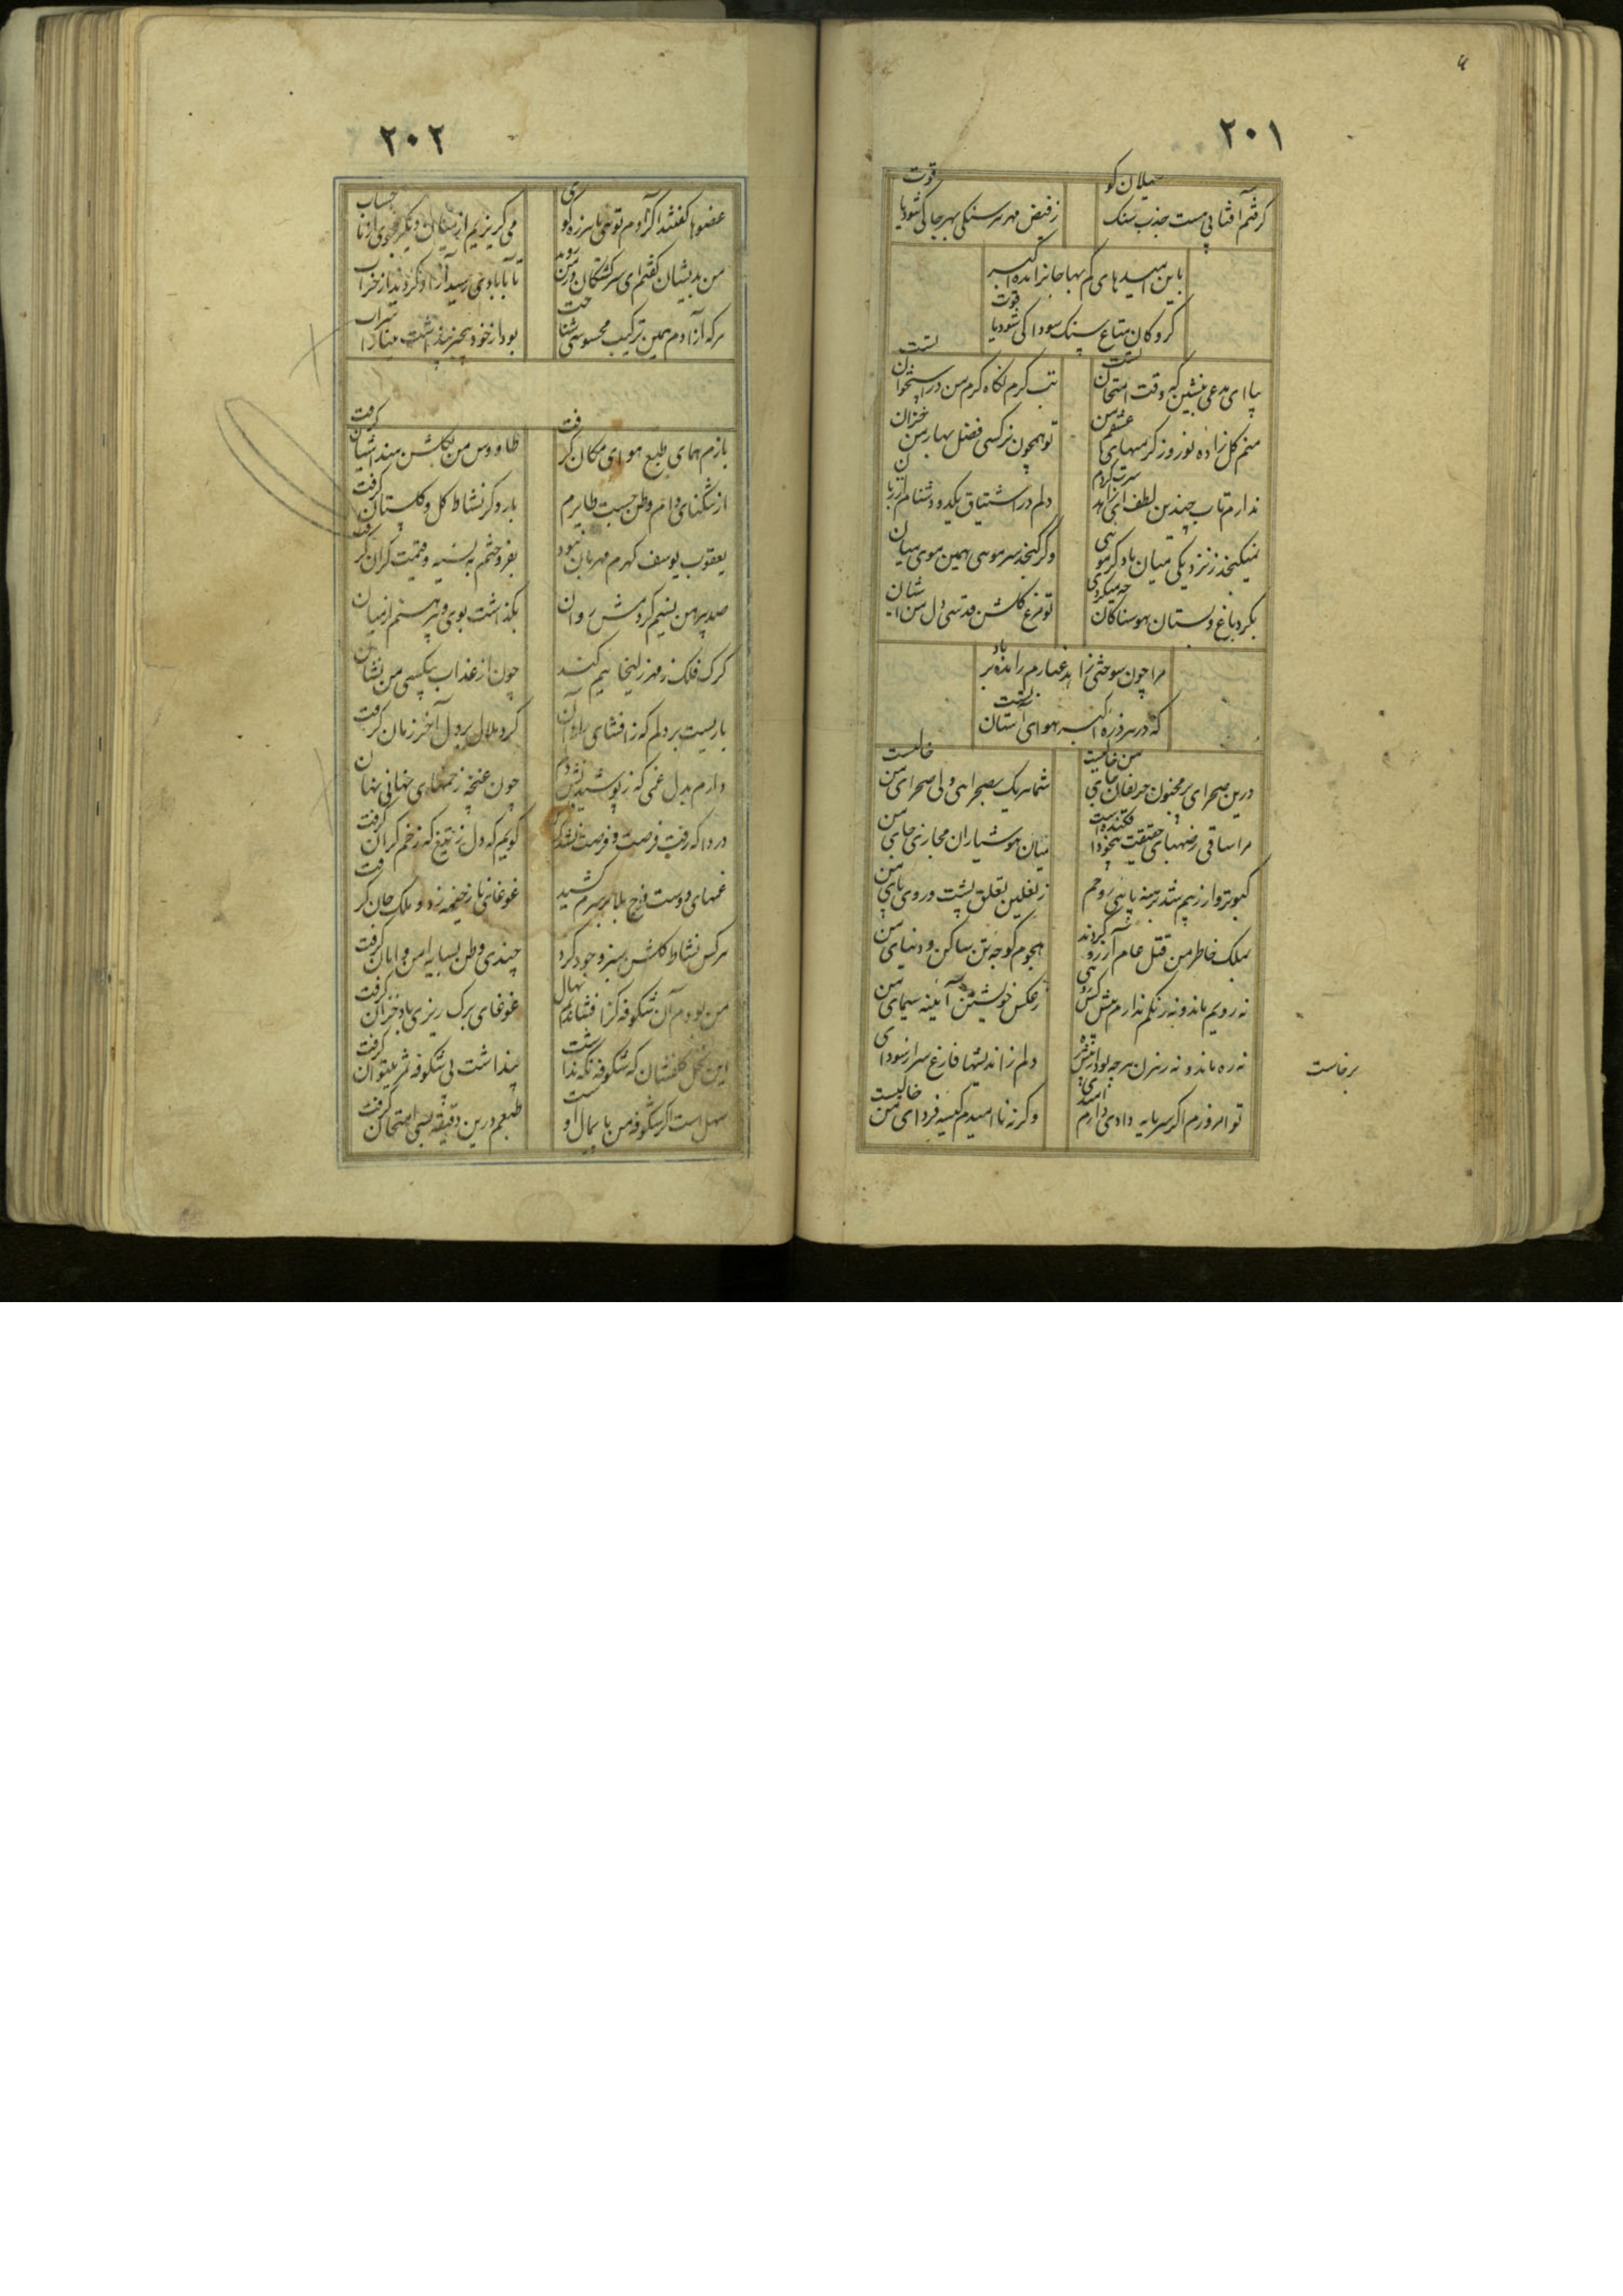 ۲۰۱
گرفتم آفتابی هست جذب سنگ سیلان کو
ز فیض مهر هر سنگی بهر جا کی شود یاقوت
باین امید های کم بها جانرا مده اکسیر
گرو کان متاع سنگ سودا کی شود یاقوت
بیا ای مدعی بنشین که وقت امتحانست
تب گرم نگاه گرم من در استخوانست
منم گل زاده نوروز گرمیهای عشق من
تو همچون نرگسی فصل بهار من خزان
ندارم تاب چندین لطف ای زاهد سرت گردم
دلم در اشتیاق یکدو دشنام از زبان
نمیگنجد ز نزدیکی میان ما دگر مویی
وگر گنجد سر مویی همین موی میان
بگرد باغ و بستان هوسناکان چه میگردی
تو مرغ گلشن قدسی دل من آشیان
مرا چون سوختی زاهد غبارم را مده بر باد
که در هر ذره اکسیر هوای آستان
درین صحرای پر مجنون حریفان جای من خالیست
شما هر یک بصحرایی ولی صحرای من خالیست
مرا ساقی ز صهبای حقیقت بیخود افکندست
میان هوشیاران مجازی جای من
کبوتروار زیرم شد برهنه پا پی روحم
ز نعلین تعلق پشت و روی پای من
بملک خاطر من قتل عام آرزو کردند
هجوم کوچه تن ساکن و دنیای من
نه رویم ماند و نه رنگم ندارم پیش کس رویی
ز عکس خویشتن آئینه سیمای من
نه ره ماند و نه رهزن هر چه بود از پیش ره
دلم ز اندیشها فارغ سر از سودای
برخاست
تو امروزم اگر سرمایه دادی دارم امیدی
وگرنه ناامیدم کیسه فردای من خالیست
۲۰۲
عضوها گفتند اگر آدم تویی با سر ز گوی
می گریزیم از میان دیگر مجوی از ما حساب
من بدیشان گفتم ای سرگشتگان در من روید
تا بآبادی رسید آزاد گردید از خراب
هر که از آدم همین ترکیب محسوسی شناخت
بود از خود بیخبر پنداشت مینا را شراب
بازم همای طبع هوای مکان گرفت
طاووس من بگلشن هند آشیان گرفت
از تنگنای دام وطن جست طایرم
بار دگر نشاط گل و گلستان گرفت
یعقوب یوسف گهرم مهربان نبود
بفروختم به نسیه و قیمت گران گرفت
صد پیرهن نسیم کرد مش روان
بگذاشت بوی و پیرهنم از میان
گرگ فلک ز مهر زلیخائیم کند
چون از عذاب بیکسی من نشان
باریست بر دلم که ز افشای راز آن
گرد ملال بر دل آخر زمان گرفت
دارم بدل غمی که ز پوشیدنش دلم
چون غنچه زخمهای نهانی نهان
دردا که رفت فرصت و فرصت نشد که
گویم که دل ز تیغ که زخم گران گرفت
غمهای دوست فوج بلا بر سرم کشید
غوغای ناز خیمه زد و ملک جان گرفت
هر کس نشاط گلشن سبز وجود کرد
چندی وطن بسایه امن و امان گرفت
من بودم آن شکوفه کز افشاندم نهال
غوغای برگ ریزی باد خزان گرفت
این نخل گلفشان که شکوفه نگه نداشت
پنداشت بی شکوفه ثمر میتوان گرفت
سهل است اگر شکوفه من پایمال اوست
طبعم درین دقیقه بسی امتحان گرفت